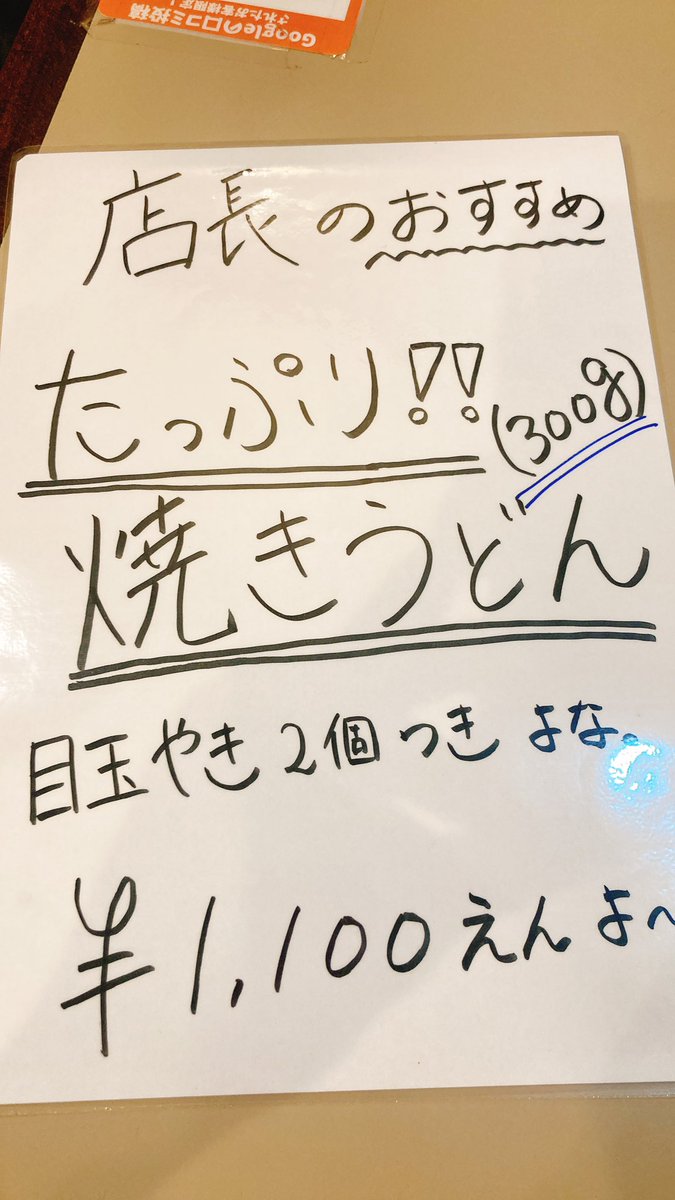 Googleの口コミ投稿
されたお客様限定！
店長のおすすめ
たっぷり!! (300g)
焼きうどん
目玉やき2個つきよな。
¥1,100えんよ〜